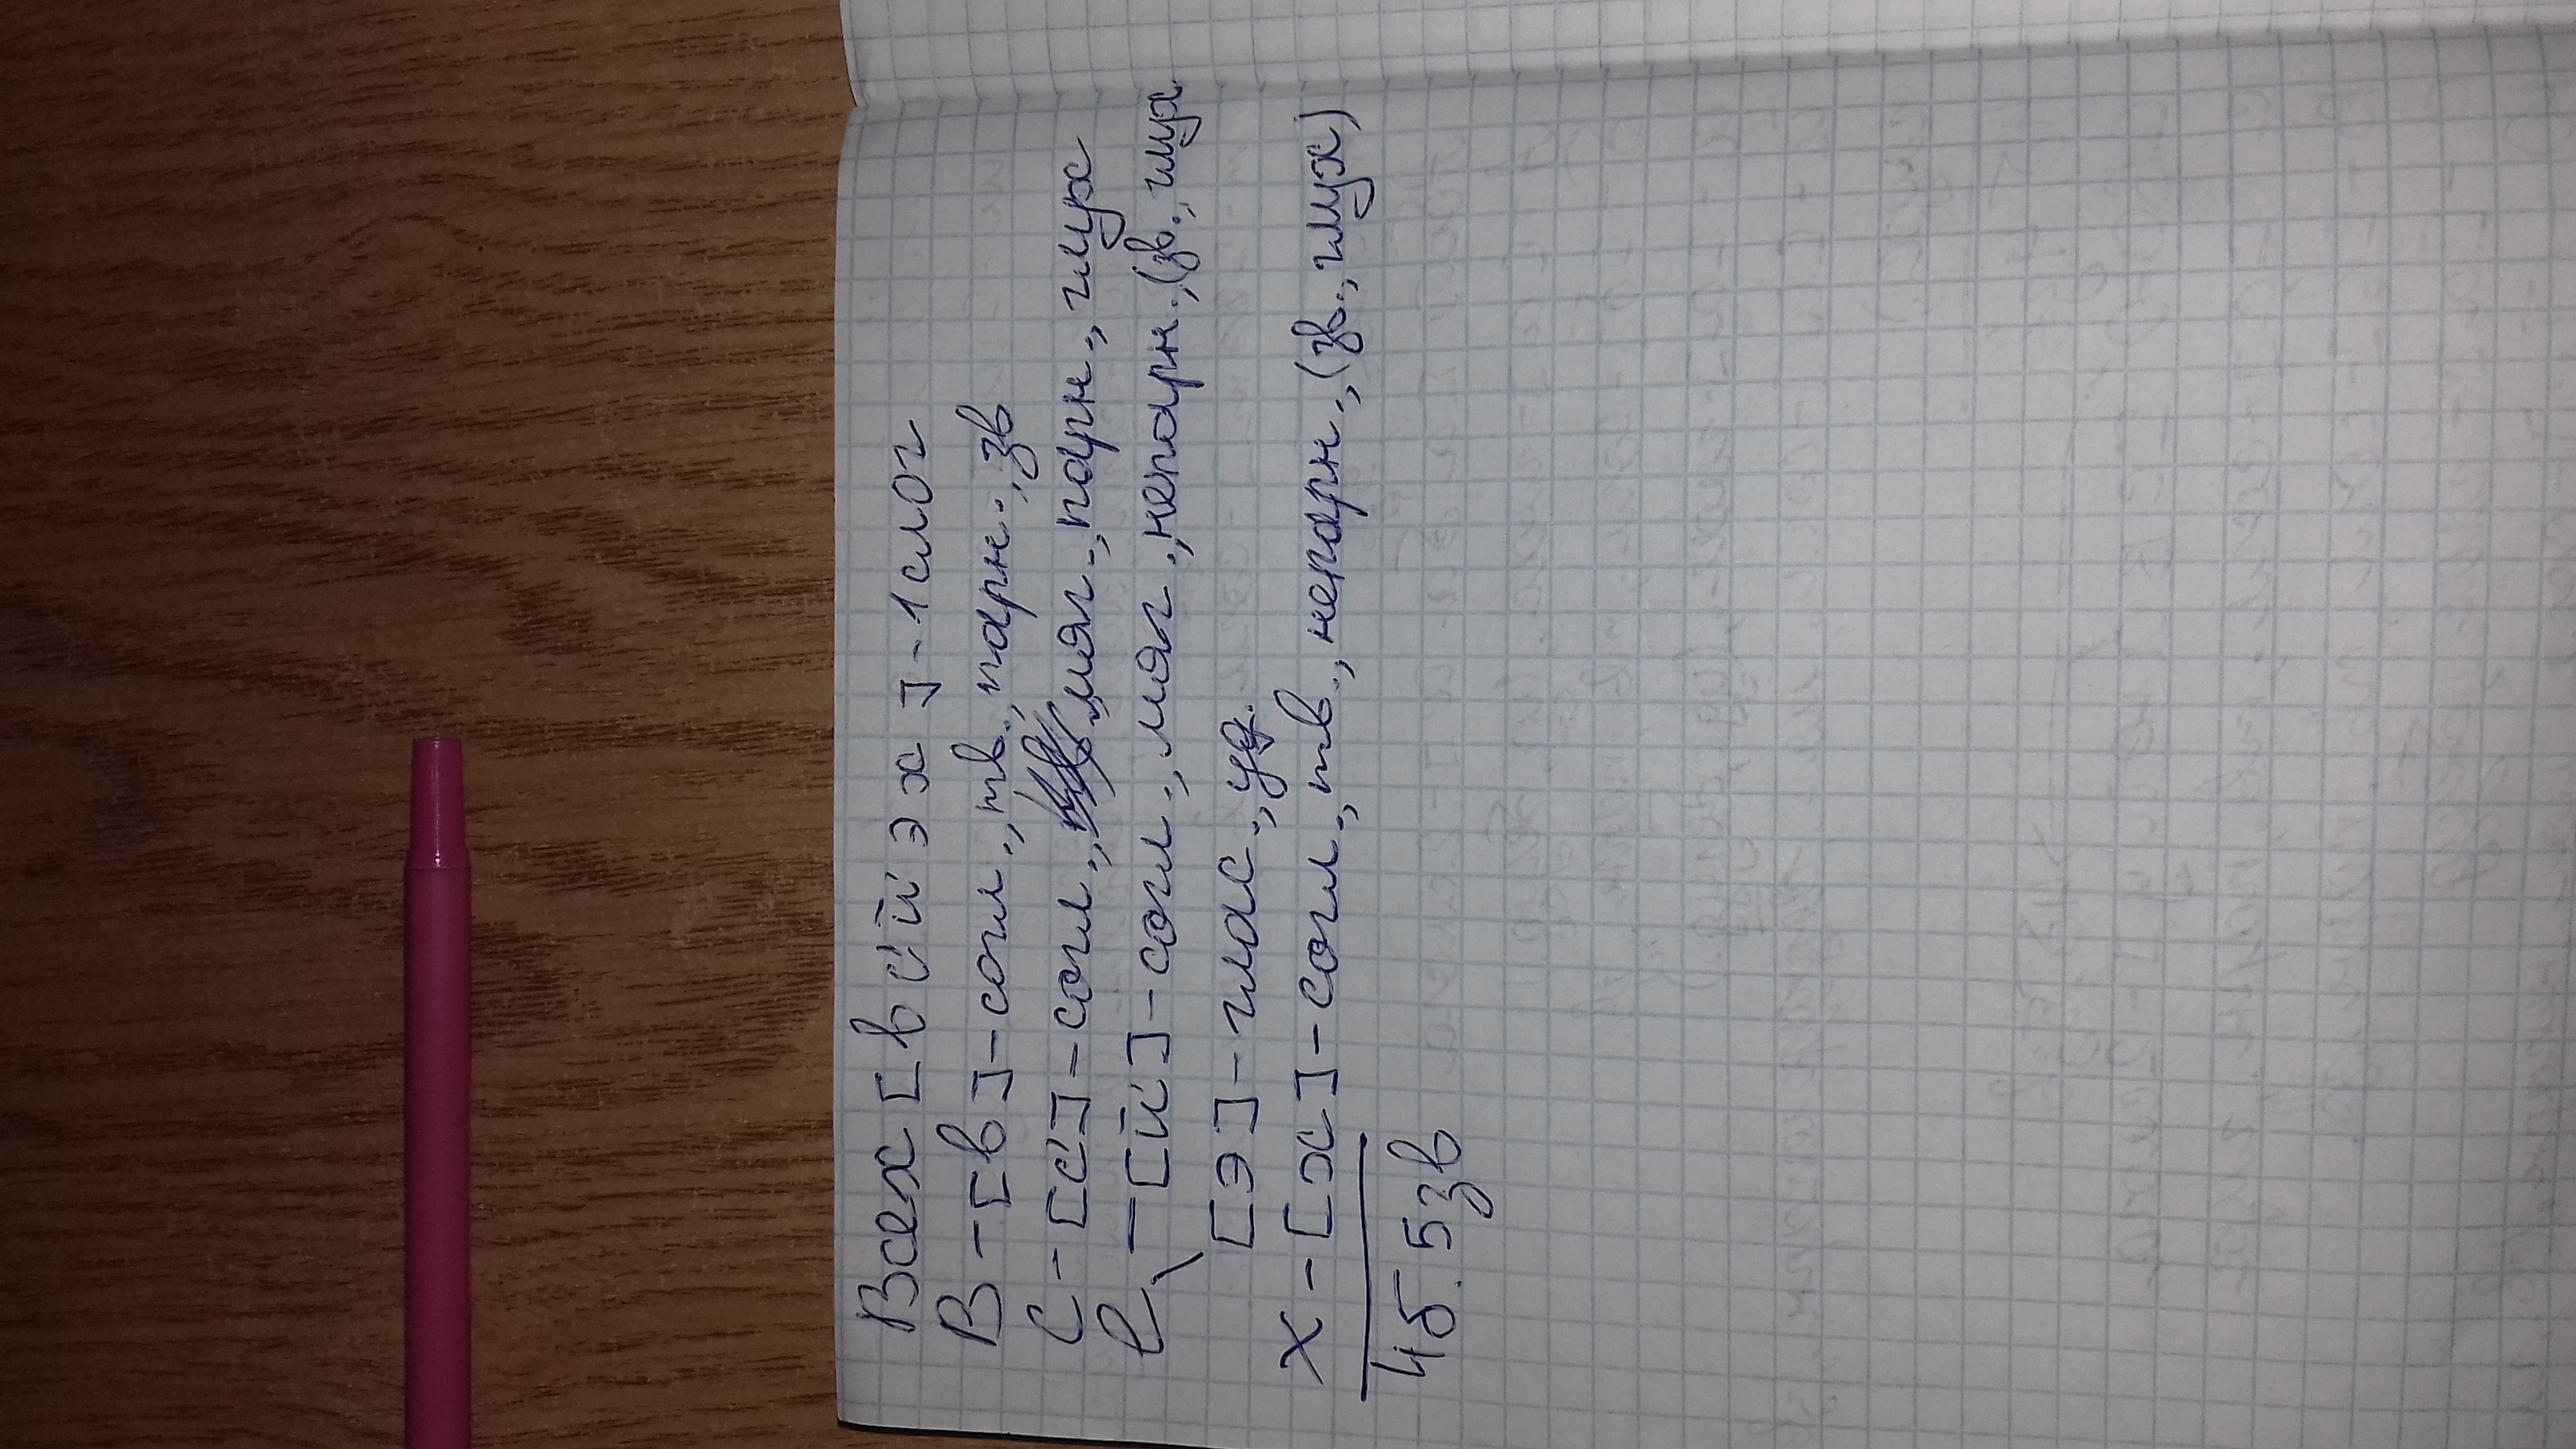 Всех [в с' й' э х ] - 1 слог
В - [в] - согл., тв., парн., зв
С - [с'] - согл., мяг., парн., глух
е - [й'] - согл., мяг., непарн., (зв., глух
\ [э] - глас., уд.
х - [х] - согл., тв., непарн., (зв., глух)
4 б. 5 зв